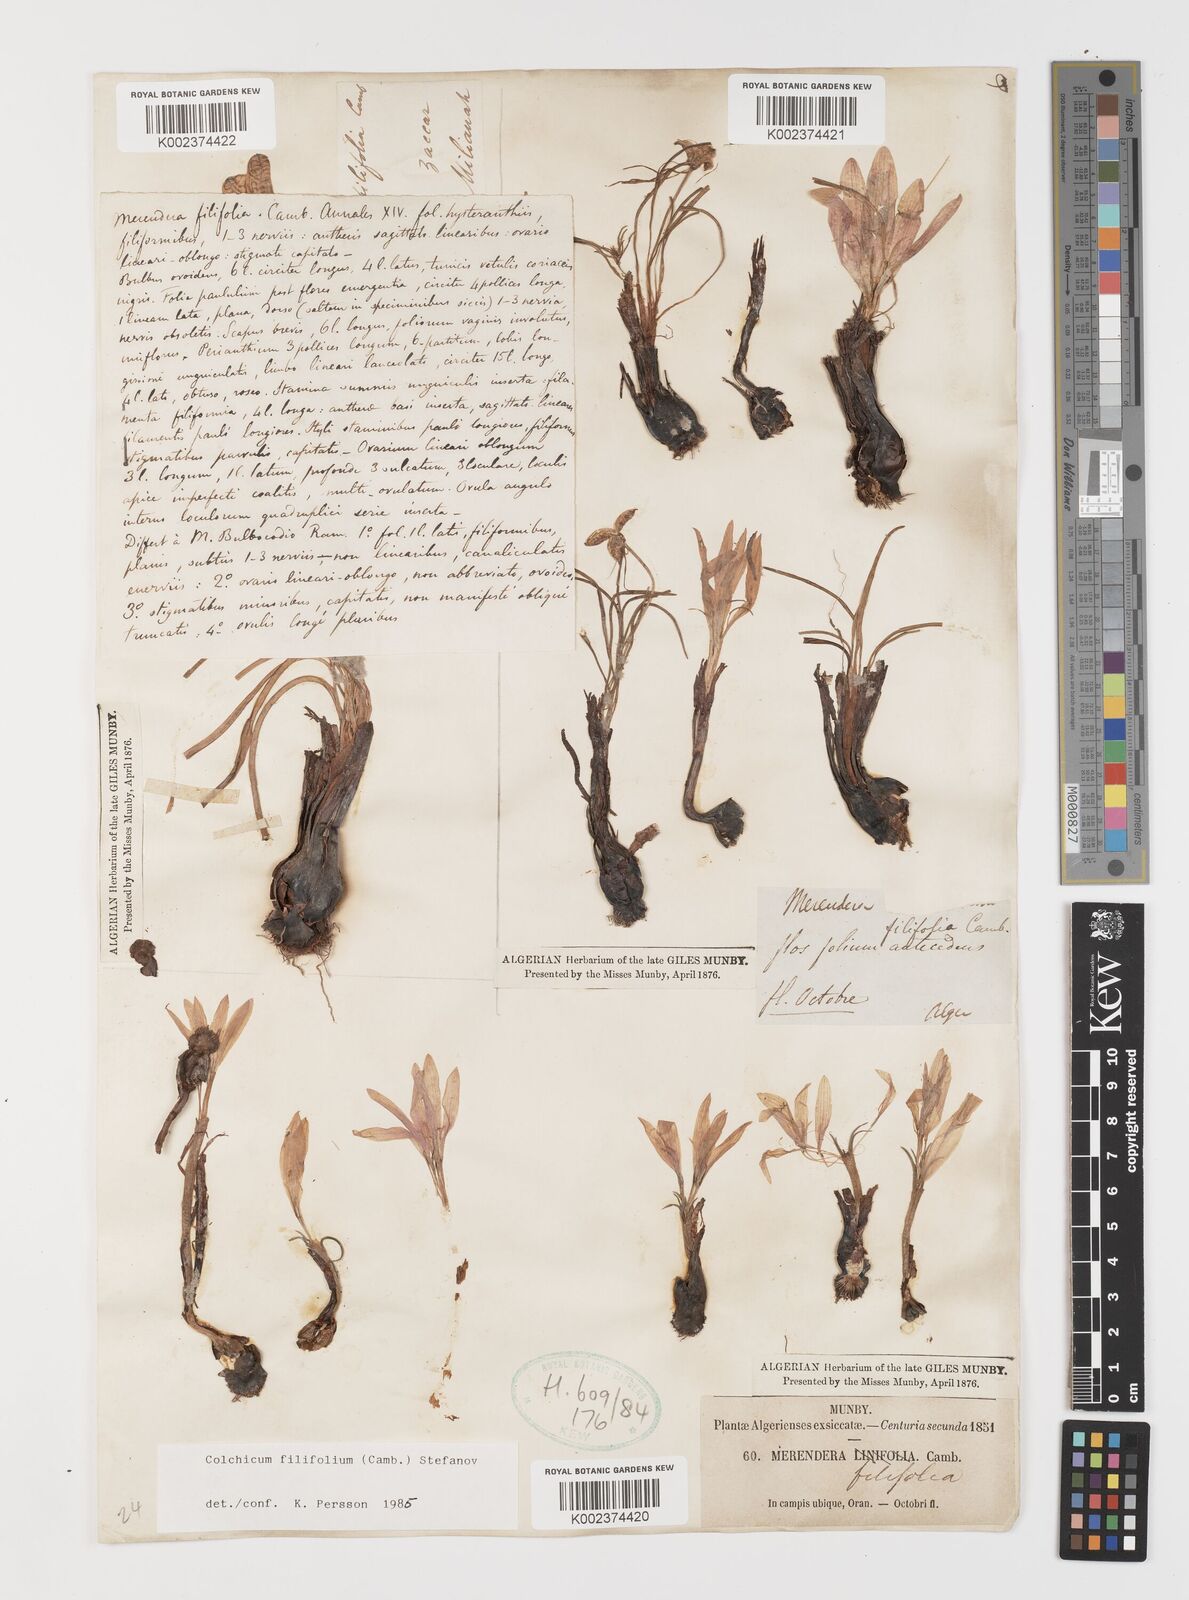 ROYAL BOTANIC GARDENS KEW
K002374422
ROYAL BOTANIC GARDENS KEW
K002374421
filifolia Camb
Zaccar
Milianah
Merendera filifolia. Camb. Annales XIV. fol. hysteranthiis,
filiformibus, 1-3 nerviis: antheris sagittatis linearibus: ovario
lineari-oblongo: stigmate capitato —
Bulbus ovoideus, 6 l. circiter longus, 4 l. latus, tunicis vetulis coriaceis
nigris. Folia paululum post flores emergentia, circiter 4 pollices longa,
1 lineam lata, plana, dorso (saltem in speciminibus siccis) 1-3 nervia,
nervis obsoletis. Scapus brevis, 6 l. longus, foliorum vaginis involutus,
uniflorus. Perianthium 3 pollices longum, 6-partitum, lobis lon-
gissime unguiculatis, limbo lineari lanceolato, circiter 15 l. longo,
4 l. lato, obtuso, roseo. Stamina summis unguiculis inserta: fila-
menta filiformia, 4 l. longa: antheræ basi insertæ, sagittato-lineares
filamentis paulò longiores. Styli staminibus paulò longiores, filiformes
stigmatibus parvulis, capitatis — Ovarium lineari oblongum
3 l. longum, 1 l. latum, profonde 3 sulcatum, 3 loculare, loculis
apice imperfecti coalitis, multi-ovulatum. Ovula angulo
interno loculorum quadruplici serie inserta —
Differt à M. Bulbocodio Ram. 1º fol. 1 l. latis, filiformibus,
planis, subtus 1-3 nerviis — non linearibus, canaliculatis
enerviis: 2º ovario lineari-oblongo, non abbreviato, ovoideo,
3º stigmatibus minoribus, capitatis, non manifestè obliquè
truncatis: 4º ovulis longè pluribus
ALGERIAN Herbarium of the late GILES MUNBY.
Presented by the Misses Munby, April 1876.
ALGERIAN Herbarium of the late GILES MUNBY.
Presented by the Misses Munby, April 1876.
Merendera
filifolia Camb.
flos folium antecedens
fl. Octobre
Alger
ALGERIAN Herbarium of the late GILES MUNBY.
Presented by the Misses Munby, April 1876.
MUNBY.
Plantæ Algerienses exsiccatæ.—Centuria secunda 1851
60. MERENDERA LINIFOLIA. Camb.
filifolia
In campis ubique, Oran. — Octobri fl.
ROYAL BOTANIC GARDENS
H. 609/84
176
KEW
Colchicum filifolium (Camb.) Stefanov
det./conf. K. Persson 1985
24
ROYAL BOTANIC GARDENS KEW
K002374420
Don Williams
M000827
centimeters
Kew
copyright reserved
0 1 2 3 4 5 6 7 8 9 10
cm